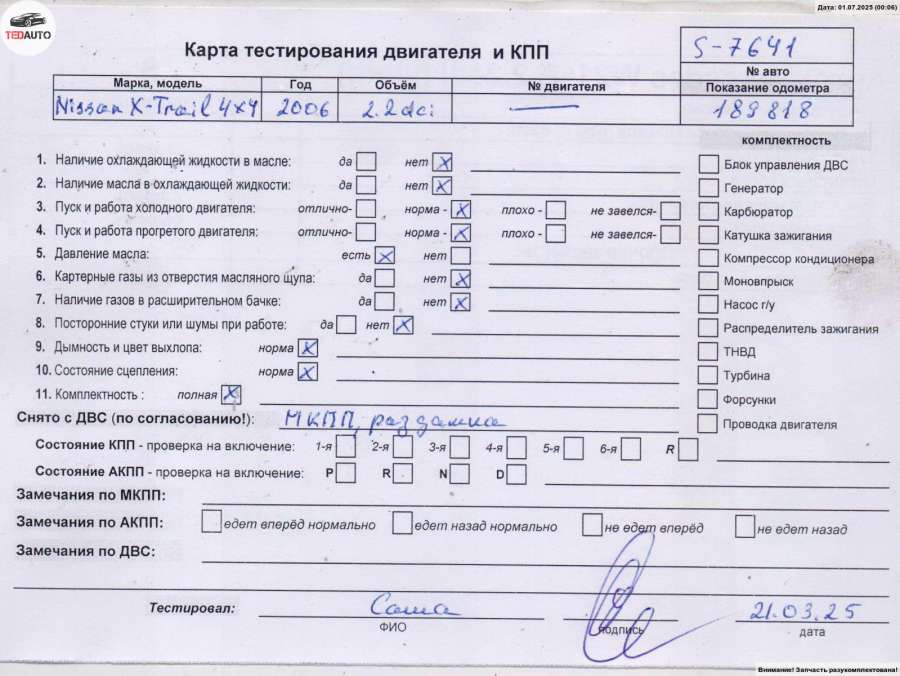 Дата: 01.07.2025 (00:06)
TEDAUTO
Карта тестирования двигателя и КПП
S-7641
№ авто
Марка, модель Год Объём № двигателя Показание одометра
Nissan X-Trail 4x4 2006 2.2 dci — 189818
комплектность
1. Наличие охлаждающей жидкости в масле: да нет X
Блок управления ДВС
2. Наличие масла в охлаждающей жидкости: да нет X
Генератор
3. Пуск и работа холодного двигателя: отлично- норма - X плохо - не завелся-
Карбюратор
4. Пуск и работа прогретого двигателя: отлично- норма - X плохо - не завелся-
Катушка зажигания
5. Давление масла: есть X нет
Компрессор кондиционера
6. Картерные газы из отверстия масляного щупа: да нет X
Моновпрыск
7. Наличие газов в расширительном бачке: да нет X
Насос г/у
8. Посторонние стуки или шумы при работе: да нет X
Распределитель зажигания
9. Дымность и цвет выхлопа: норма X
ТНВД
10. Состояние сцепления: норма X
Турбина
11. Комплектность : полная X
Форсунки
Снято с ДВС (по согласованию!): МКПП, раздатка
Проводка двигателя
Состояние КПП - проверка на включение: 1-я 2-я 3-я 4-я 5-я 6-я R
Состояние АКПП - проверка на включение: P R N D
Замечания по МКПП:
Замечания по АКПП: едет вперёд нормально едет назад нормально не едет вперёд не едет назад
Замечания по ДВС:
Тестировал: Саша 21.03.25
ФИО подпись дата
Внимание! Запчасть разукомплектована!